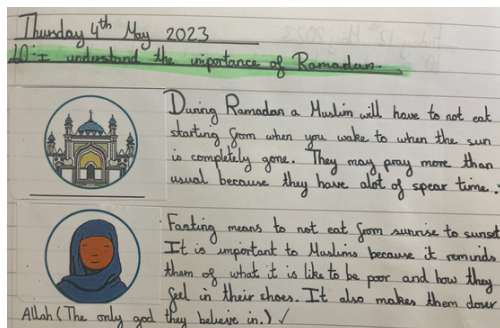 Thursday 4th May 2023
LO: I understand the importance of Ramadan.
During Ramadan a Muslim will have to not eat
starting from when you wake to when the sun
is completely gone. They may pray more than
usual because they have alot of spear time.
Fasting means to not eat from sunrise to sunset
It is important to Muslims because it reminds
them of what it is like to be poor and how they
feel in their shoes. It also makes them closer
Allah (The only god they believe in.) ✓